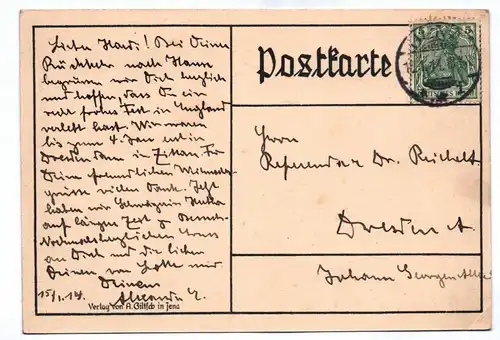 Lieber Hans! Bei Deiner
Rückkehr nach Hause
begrüssen wir Dich herzlich
und hoffen, dass Du ein
recht frohes Fest in England
verlebt hast. Wir waren
bis zum 4. Jan erst in
Dresden dann in Zittau. Für
Deine freundlichen Weihnachts-
grüsse vielen Dank. Jetzt
haben wir Schwägerin
auf längere Zeit z. Besuch.
Nochmals herzlichen Gruss
an Dich und die lieben
Deinen von
Deinem
15/1.14.
Verlag von A. Giltsch in Jena
Postkarte
Herrn
Referendar Dr. Reichelt
Dresden A.
Johann Georgen Allee